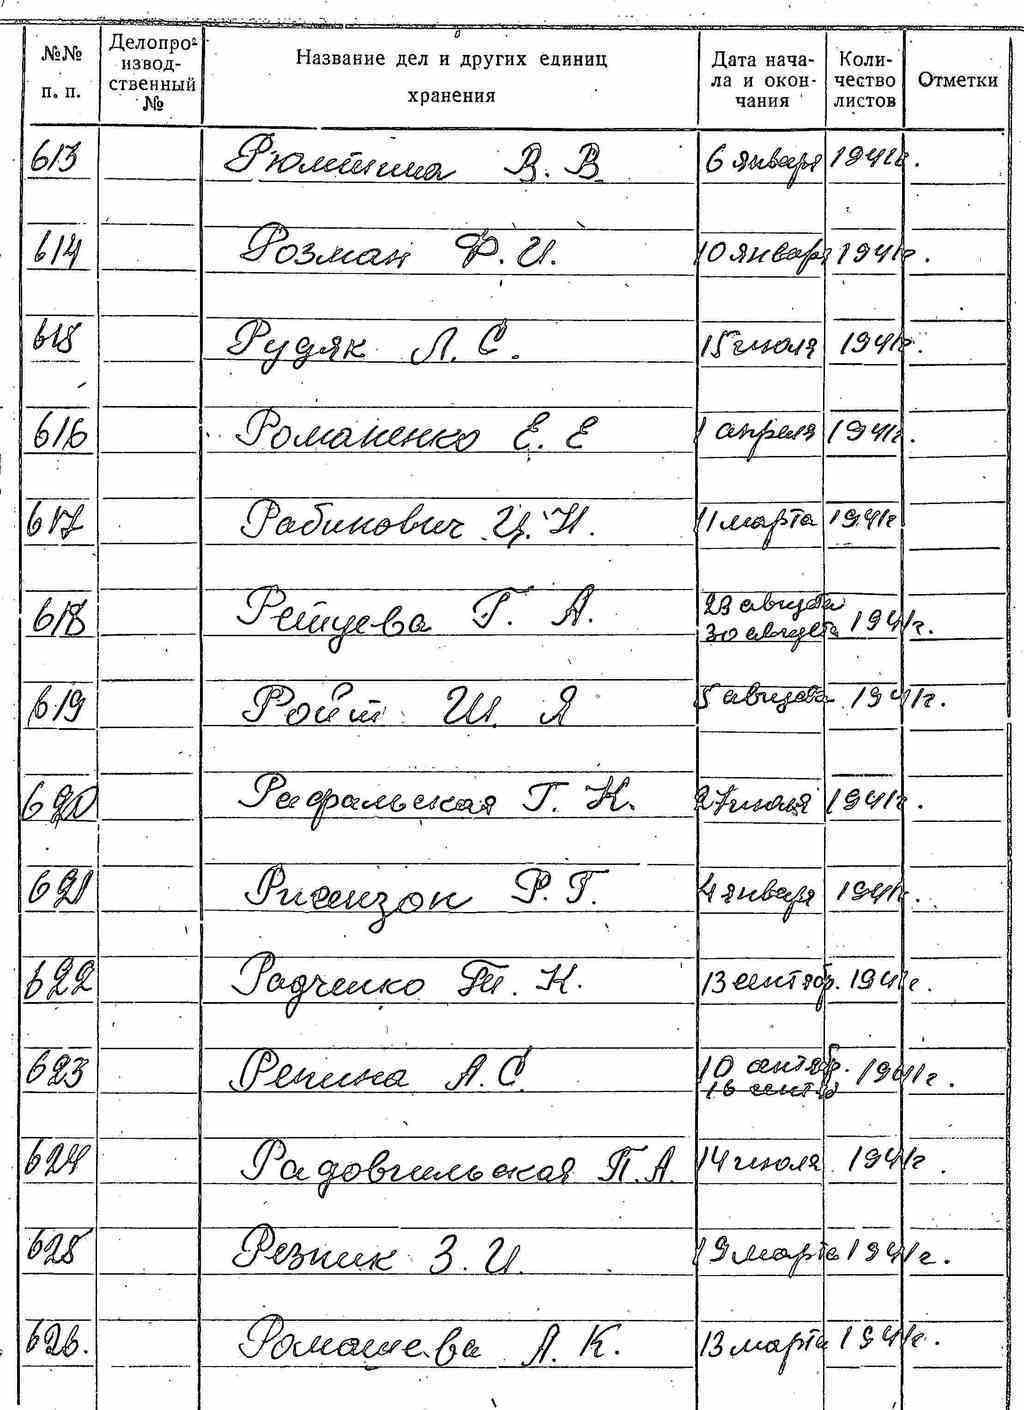 №№ п. п.
Делопроизводственный №
Название дел и других единиц хранения
Дата начала и окончания
Количество листов
Отметки
613 В. В. 6 января 1941г.
614 Розман Ф. И. 10 января 1941г.
615 Рудяк Л. С. 15 июля 1941г.
616 Романенко Е. Е 1 апреля 1941г.
617 Рабинович Ц. И. 11 марта 1941г
618 Г. А. 29 августа
30 августа 1941г.
619 Ройт Ш. Я 5 августа 1941г.
620 Рафальская Г. Н. 27 июля 1941г.
621 Р. Г. 4 января 1941г.
622 Радченко Н. 13 сентябр. 1941г.
623 Репина А. С. 10 сентябр.
16 сентяб 1941г.
624 П. А. 14 июля 1941г.
625 Резник З. И. 19 марта 1941г.
626. А. К. 13 марта 1941г.